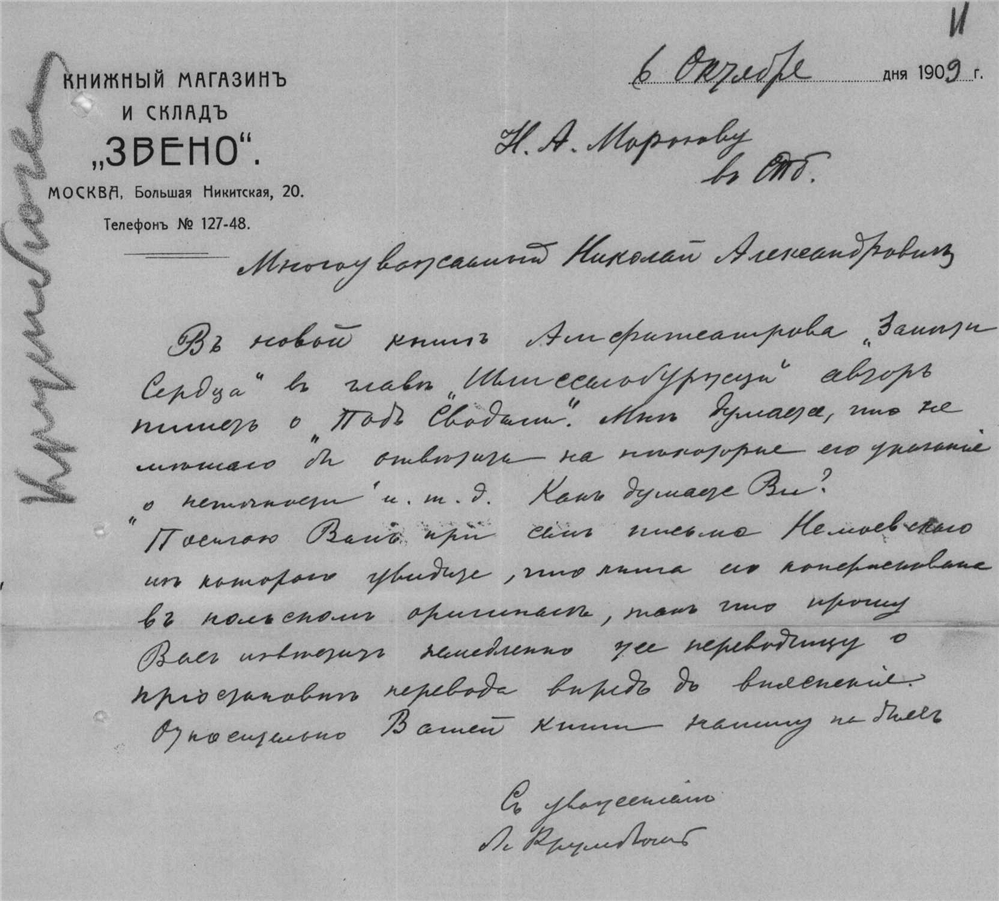 11
КНИЖНЫЙ МАГАЗИНЪ
И СКЛАДЪ
„ЗВЕНО“.
МОСКВА, Большая Никитская, 20.
Телефонъ № 127-48.
6 Октября дня 1909 г.
Н. А. Морозову
въ СПб.
Многоуважаемый Николай Александровичъ
Въ новой книгѣ Амфитеатрова „Записи
Сердца“ въ главѣ „Шлиссельбуржцы“ авторъ
пишетъ о „Подъ Сводами“. Мнѣ думается, что не
мѣшало бы отвѣтить на некоторые его указанiе
о „неточности“ и. т. д. Какъ думаете Вы?
Посылаю Вамъ при семъ письмо Немоевскаго
изъ котораго увидите, что книга его конфискована
въ польскомъ оригиналѣ, такъ что прошу
Васъ известить немедленно же переводчицу о
прiостановкѣ перевода впредь до выясненiе.
Относительно Вашей книги напишу на дняхъ
Съ уваженiемъ